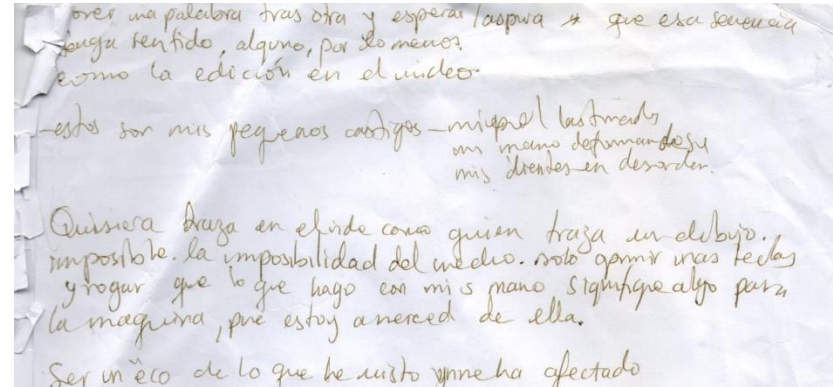 poner una palabra tras otra y esperar / aspirar a que esa secuencia
tenga sentido, alguno, por lo menos.
como la edición en el video.
-estos son mis pequeños castigos - mi piel lastimada
mi mano deformandose
mis dientes en desorden.
Quisiera trazar en el vide como quien traza un dibujo.
imposible. la imposibilidad del medio. solo oprimir unas teclas
y rogar que lo que hago con mis mano signifique algo para
la maquina, pue estoy a merced de ella.
Ser un eco de lo que he visto y me ha afectado